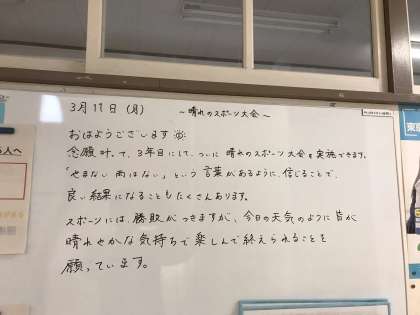 3月11日(月)
～晴れのスポーツ大会～
おはようございます
念願叶って、3年目にして、ついに晴れのスポーツ大会を実施できます。
「やまない雨はない」という言葉があるように、信じることで、
良い結果になることもたくさんあります。
スポーツには勝敗がつきますが、今日の天気のように皆が
晴れやかな気持ちで楽しんで終えられることを
願っています。
人へ